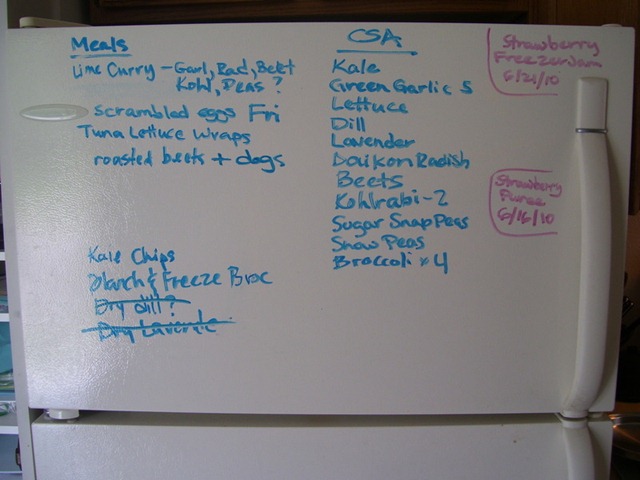 Meals
Lime Curry - Garl, Rad, Beet
Kohl, Peas ?
scrambled eggs Fri
Tuna Lettuce Wraps
roasted beets + dogs
Kale Chips
Blanch & Freeze Broc
Dry dill ?
Dry Lavende
CSA
Kale
Green Garlic 5
Lettuce
Dill
Lavender
Daikon Radish
Beets
Kohlrabi - 2
Sugar Snap Peas
Snow Peas
Broccoli x 4
Strawberry
Freezer Jam
6/21/10
Strawberry
Puree
6/16/10